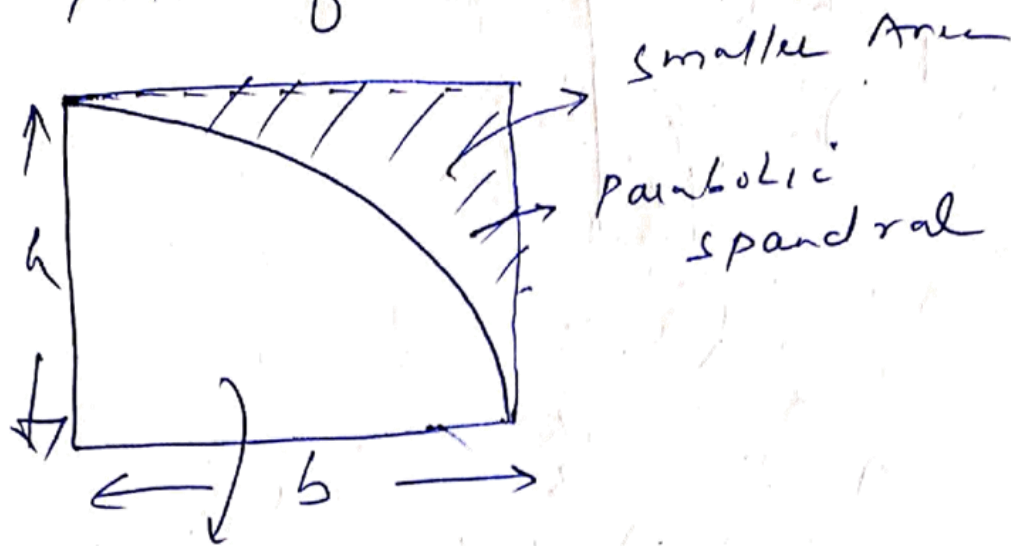 smaller Area
parabolic
spandral
h
b